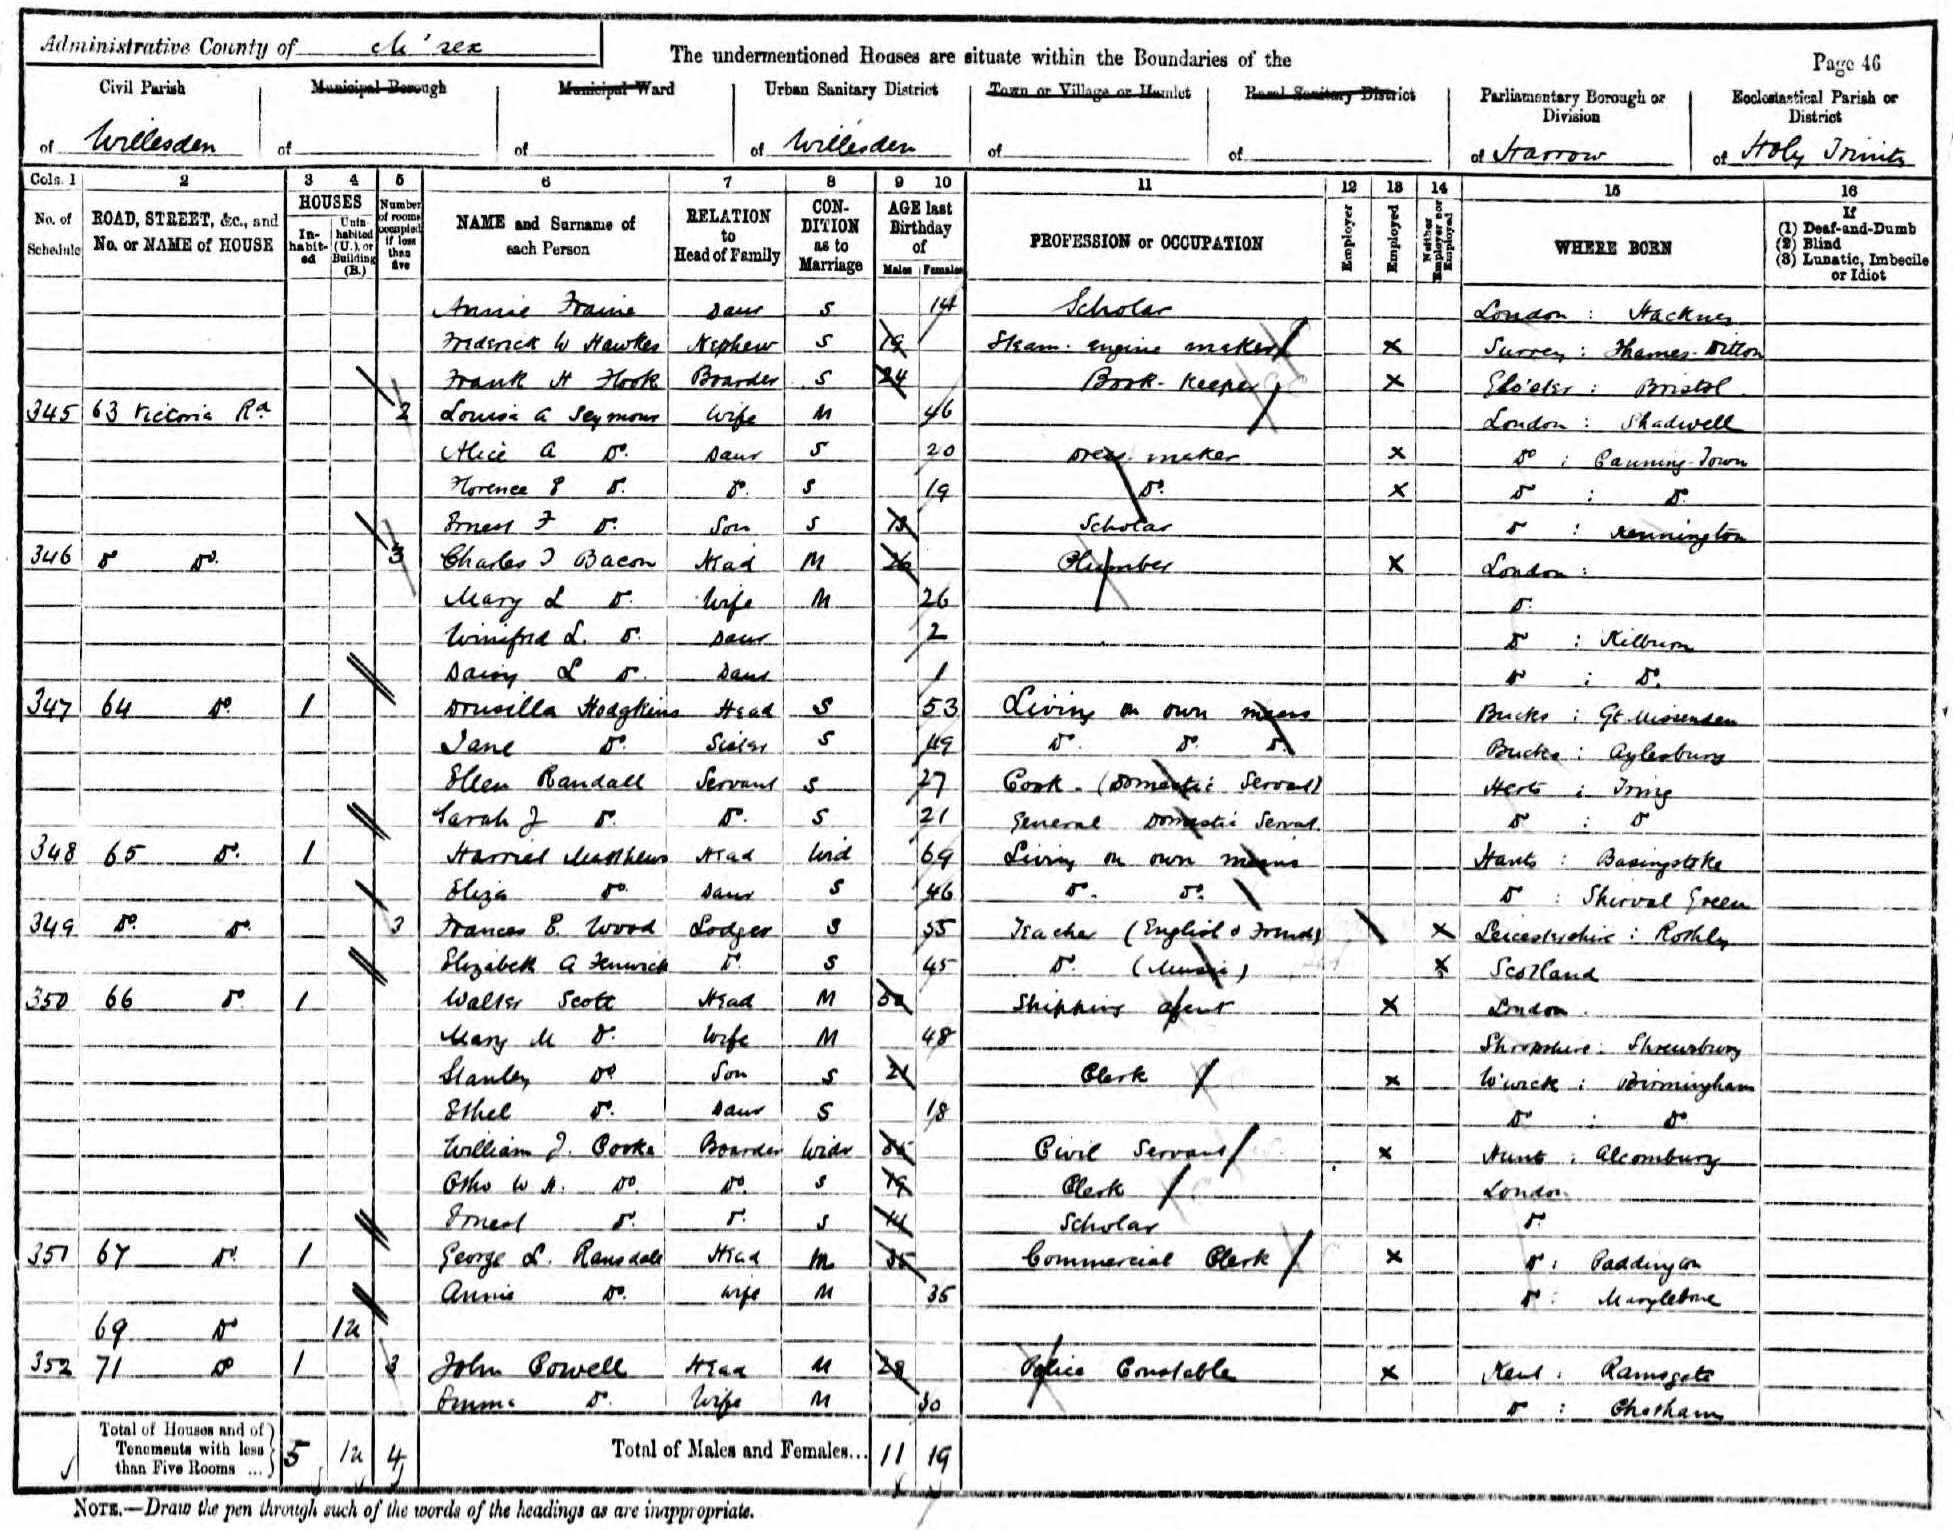 Administrative County of M'sex
The undermentioned Houses are situate within the Boundaries of the
Page 46
Civil Parish of Willesden
Municipal Borough of
Municipal Ward of
Urban Sanitary District of Willesden
Town or Village or Hamlet of
Rural Sanitary District of
Parliamentary Borough or Division of Harrow
Ecclesiastical Parish or District of Holy Trinity
Cols. 1 2 3 4 5 6 7 8 9 10 11 12 13 14 15 16
No. of Schedule
ROAD, STREET, &c., and No. or NAME of HOUSE
HOUSES
In-habit-ed
Unin-habited (U.), or Building (B.)
Number of rooms occupied if less than five
NAME and Surname of each Person
RELATION to Head of Family
CON-DITION as to Marriage
AGE last Birthday of
Males Females
PROFESSION or OCCUPATION
Employer
Employed
Neither Employer nor Employed
WHERE BORN
If (1) Deaf-and-Dumb (2) Blind (3) Lunatic, Imbecile or Idiot
Annie Fraine Daur S 14 Scholar London : Hackney
Frederick W Hawkes Nephew S 19 Steam engine maker X Surrey : Thames-Ditton
Frank H Hook Boarder S 24 Book-keeper X Glo'ster : Bristol
345 63 Victoria Rd 2 Louisa A Seymour Wife M 46 London : Shadwell
Alice A Do. Daur S 20 Dress maker X Do : Canning-Town
Florence E Do. Do. S 19 Do. X Do : Do.
Ernest F Do. Son S 13 Scholar Do : Kennington
346 Do Do. 3 Charles J Bacon Head M 26 Plumber X London :
Mary L Do. Wife M 26 Do.
Winifred L. Do. Daur 2 Do : Kilburn
Daisy L Do. Daur 1 Do : Do.
347 64 Do. 1 Drusilla Hodgkins Head S 53 Living on own means Bucks : Gt. Missenden
Jane Do. Sister S 49 Do. Do. Do. Bucks : Aylesbury
Ellen Randall Servant S 27 Cook - (Domestic Servant) Herts : Tring
Sarah J Do. Do. S 21 General Domestic Servant. Do : Do
348 65 Do. 1 Harriet Matthews Head Wid 69 Living on own means Hants : Basingstoke
Eliza Do. Daur S 46 Do. Do. Do : Green
349 Do. Do. 3 Frances E. Wood Lodger S 55 Teacher (English & French) X Leicestershire : Rothley
Elizabeth A Fenwick Do. S 45 Do. (Music) X Scotland
350 66 Do. 1 Walter Scott Head M 50 Shipping agent X London.
Mary M Do. Wife M 48 Shropshire : Shrewsbury
Stanley Do. Son S 21 Clerk X W'wick : Birmingham
Ethel Do. Daur S 18 Do : Do
William J. Cooke Boarder Widr Civil Servant X Hunts : Alconbury
Otho W H. Do. Do. S 19 Clerk London
Ernest Do. Do. S 14 Scholar Do.
351 67 Do. 1 George L. Ransdale Head M 35 Commercial Clerk X Do : Paddington
Annie Do. Wife M 35 Do : Marylebone
69 Do 1u
352 71 Do 1 3 John Cowell Head M 28 Police Constable X Kent : Ramsgate
Emma Do. Wife M 30 Do : Chatham
Total of Houses and of Tenements with less than Five Rooms ... 5 1u 4 Total of Males and Females... 11 19
NOTE.—Draw the pen through such of the words of the headings as are inappropriate.